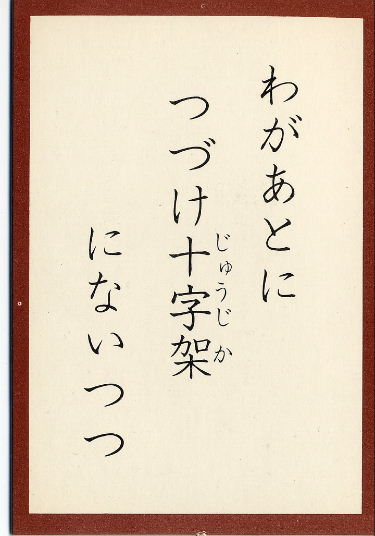 わがあとに
つづけ十字架
じゅうじか
にないつつ